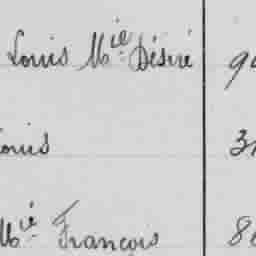 Louis Mie Désiré
Louis
Mié François